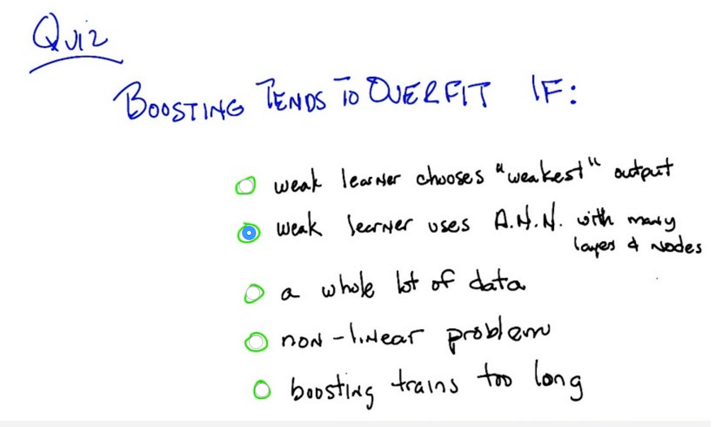 Quiz
BOOSTING TENDS TO OVERFIT IF:
weak learner chooses "weakest" output
weak learner uses A.N.N. with many
layers & nodes
a whole lot of data
non-linear problem
boosting trains too long